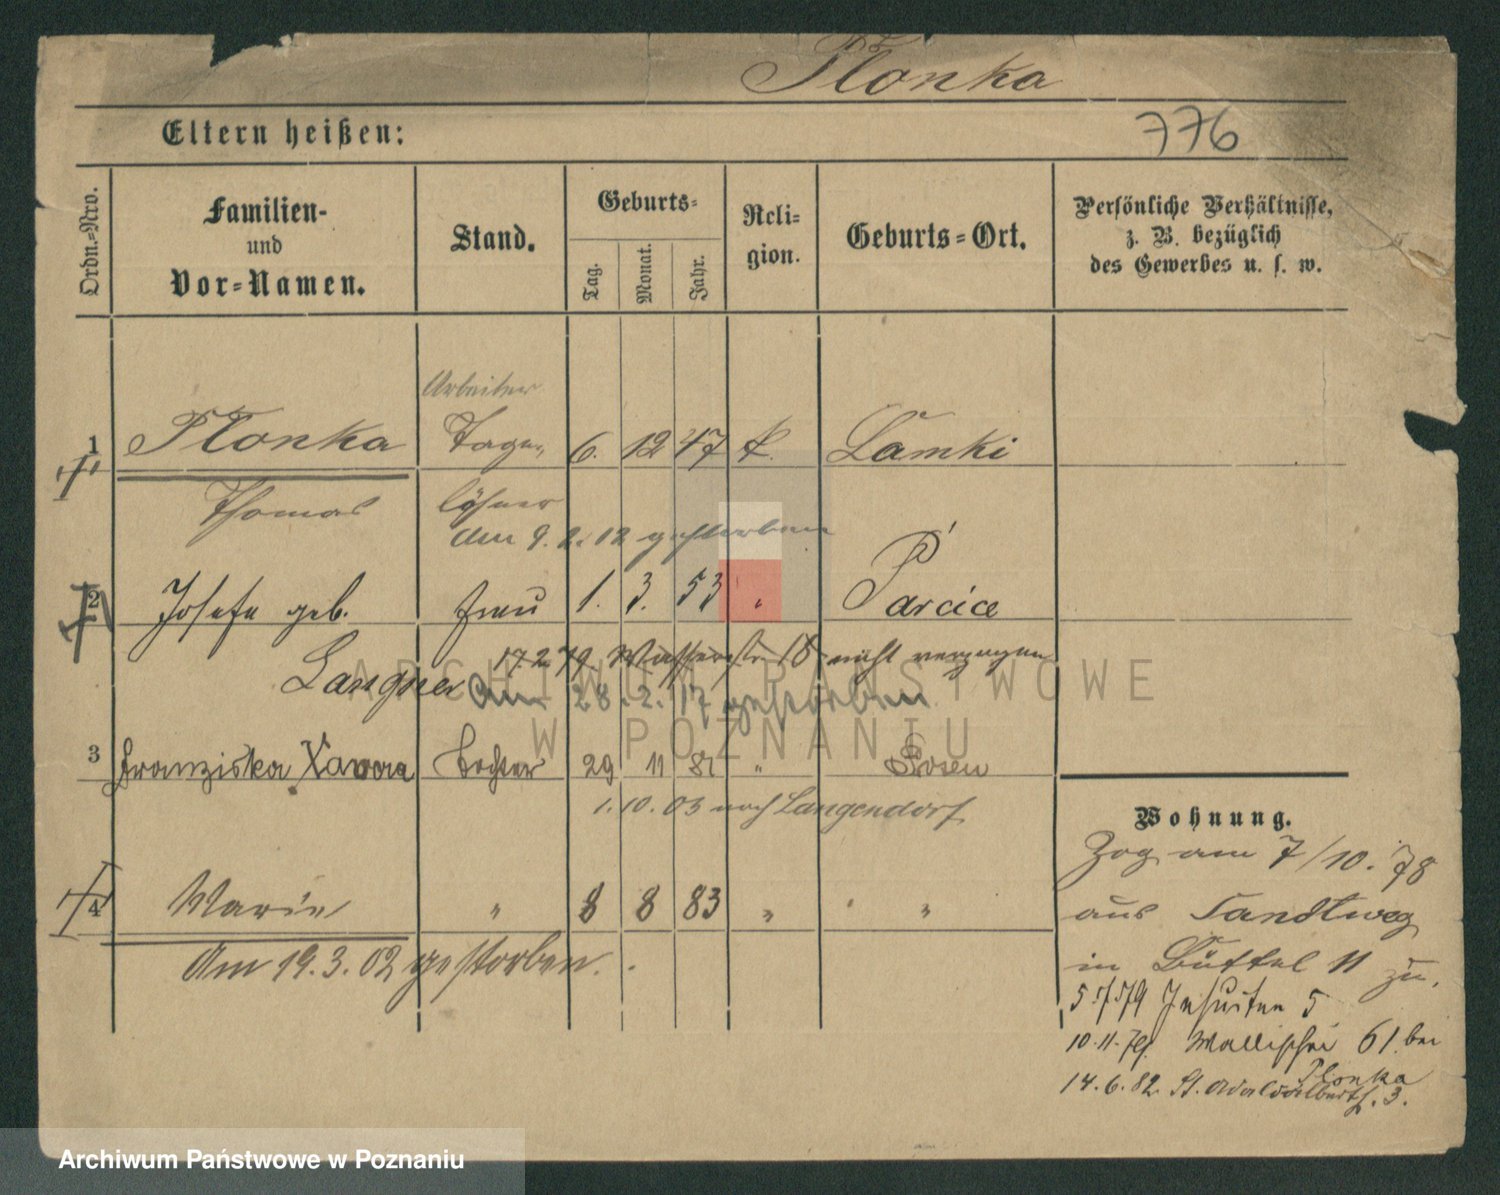 Płonka
Eltern heißen:
776
Ordn.-Nro.
Familien-
und
Vor-Namen.
Stand.
Geburts-
Tag.
Monat.
Jahr.
Reli-
gion.
Geburts-Ort.
Persönliche Verhältnisse,
z. B. bezüglich
des Gewerbes u. s. w.
Arbeiter
1 Płonka Tage- 6. 12 47 k. Lamki
Thomas löhner
am 9. 2. 12 gestorben
2 Josefa geb. Frau 1. 3. 53 " Parcice
17.2.79. Wasserstr. 18 nicht verzogen
Langner am 28. 2. 17 gestorben
3 Franziska Xavera Tochter 29 11 81 " Posen
1. 10. 03 nach Langendorf
4 Marie " 8 8 83 " "
Am 19. 3. 02 gestorben.
Wohnung.
Zog am 7/10. 78
aus
in Büttel 11 zu.
5.7.79 Jesuiten 5
10.11.79. Wallischei 61. bei
Płonka
14.6.82. St. Adalbertstr. 3.
ARCHIWUM PAŃSTWOWE
W POZNANIU
Archiwum Państwowe w Poznaniu